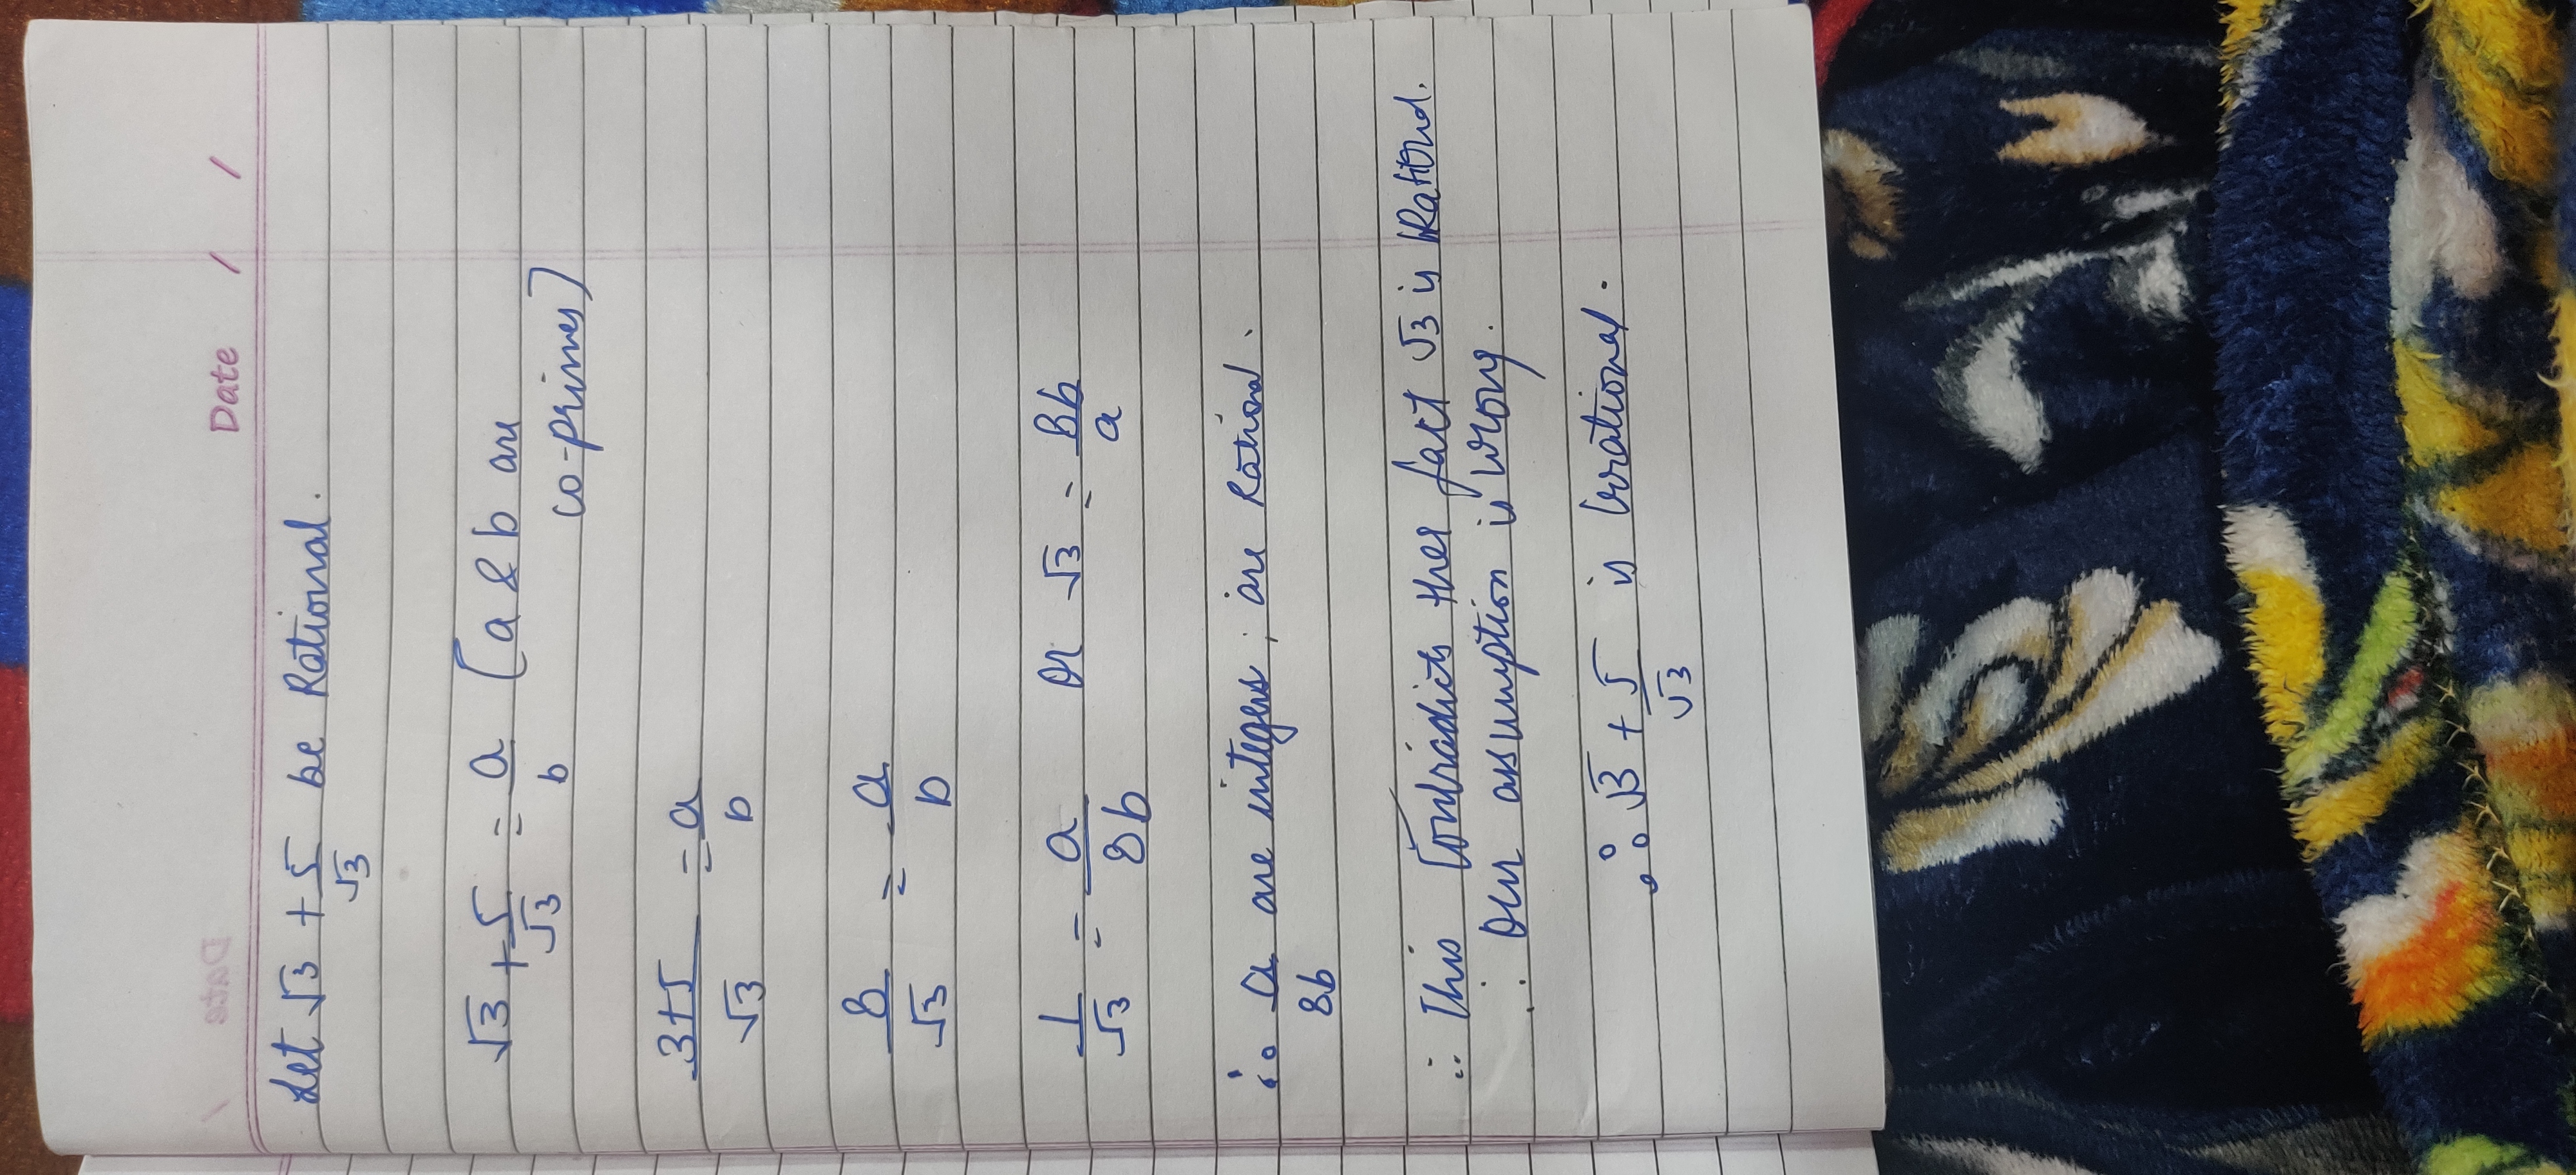 Date / /
Let √3 + 5/√3 be Rational.
√3 + 5/√3 = a/b (a & b are
co-primes)
3+5/√3 = a/b
8/√3 = a/b
1/√3 = a/8b or √3 = 8b/a
∴ a/8b are integers, are Rational.
∴ This Contradicts the fact √3 is IRational.
∴ Our assumption is wrong.
∴ √3 + 5/√3 is irrational.